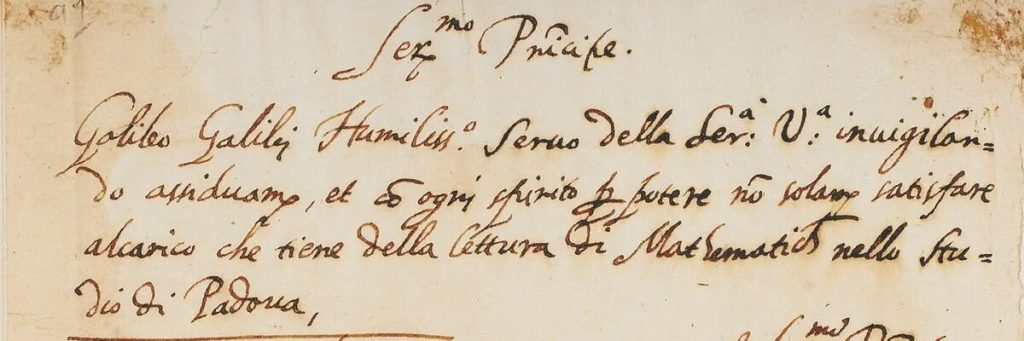 Ser.mo Prīcipe.
Galileo Galilej Humiliss.o Seruo della Ser.a V.a inuigilan=
do assiduam., et cō ogni spirito p potere nō solam. satisfare
alcarico che tiene della lettura di Mathematich nello Stu=
dio di Padoua,